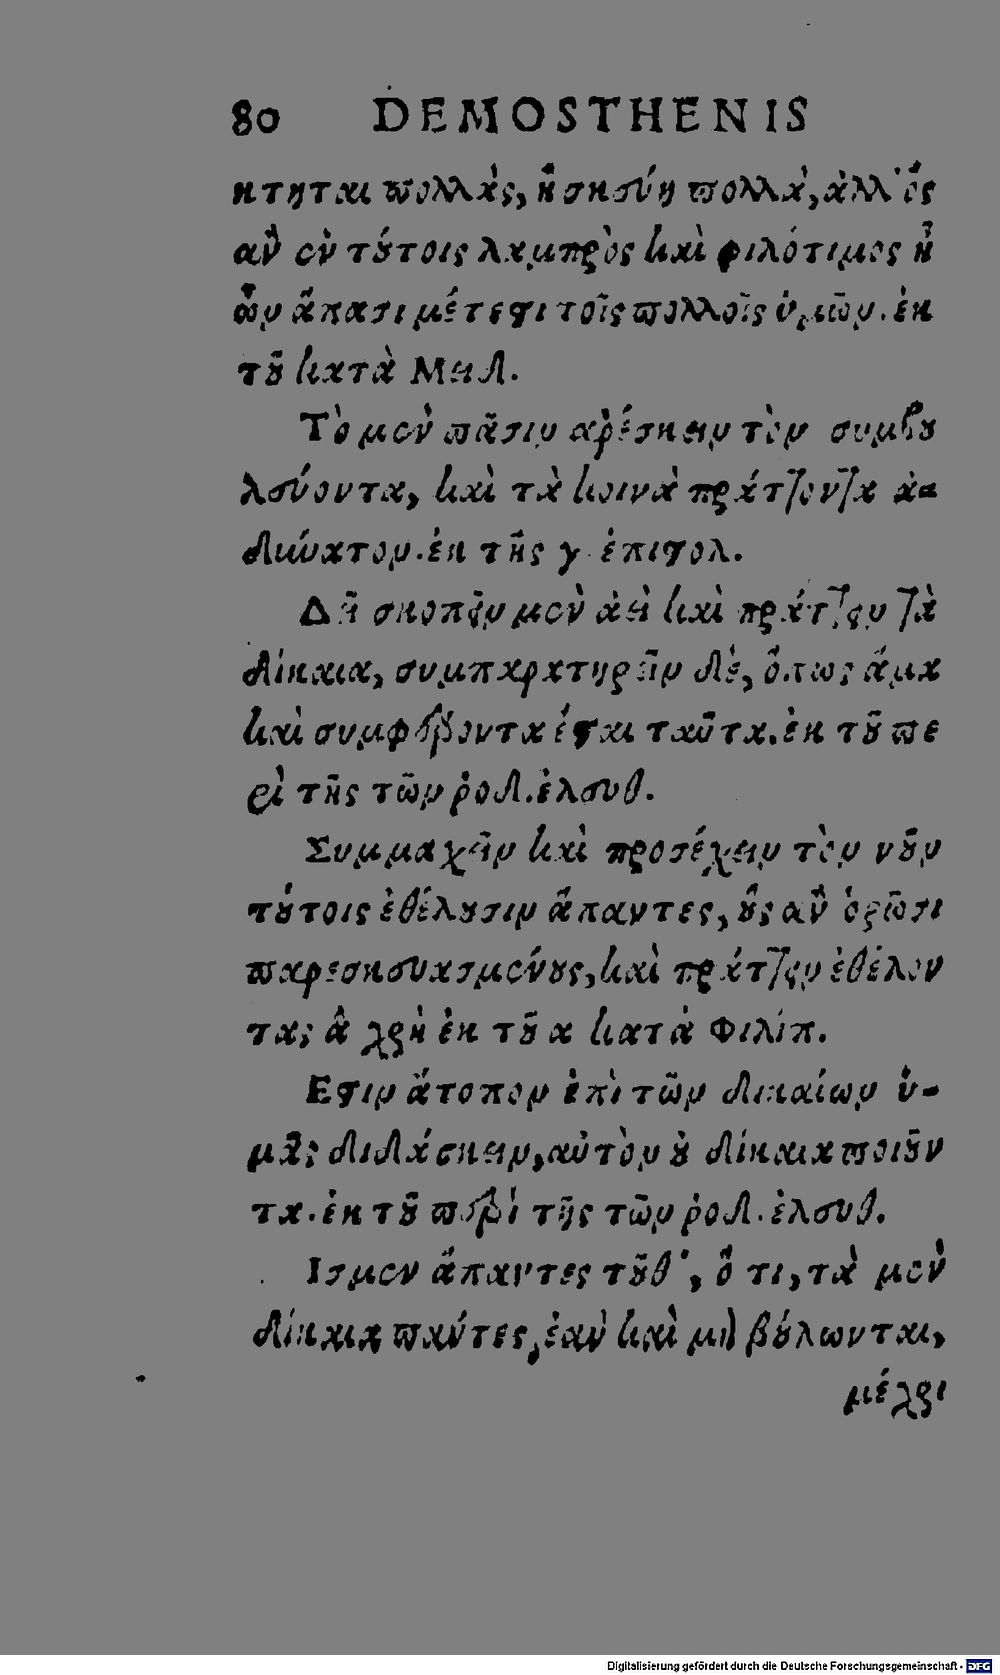 80 DEMOSTHENIS
κτηται πολλὰς, ἢ σκεύη πολλὰ, ἀλλ' ὃς
ἂν ἐν τούτοις λαμπρὸς καὶ φιλότιμος ᾖ
ὧν ἅπασι μέτεστι τοῖς πολλοῖς ὑμῶν. ἐκ
τοῦ κατὰ Μειδ.
Τὸ μὲν πᾶσιν ἀρέσκειν τὸν συμβου
λεύοντα, καὶ τὰ κοινὰ πράττοντα ἀ-
δύνατον. ἐκ τῆς γ ἐπιστολ.
Δεῖ σκοπεῖν μὲν ἀεὶ καὶ πράττειν τὰ
δίκαια, συμπαρατηρεῖν δὲ, ὅπως ἅμα
καὶ συμφέροντα ἔσται ταῦτα. ἐκ τοῦ πε
ρὶ τῆς τῶν ῥοδ. ἐλευθ.
Συμμαχεῖν καὶ προσέχειν τὸν νοῦν
τούτοις ἐθέλουσιν ἅπαντες, οὓς ἂν ὁρῶσι
παρεσκευασμένους, καὶ πράττειν ἐθέλον
τας ἃ χρὴ ἐκ τοῦ α κατὰ Φιλίπ.
Εστιν ἄτοπον ἐπὶ τῶν δικαίων ὑ-
μᾶς διδάσκειν, αὐτὸν οὐ δίκαια ποιοῦν
τα. ἐκ τοῦ περὶ τῆς τῶν ῥοδ. ἐλευθ.
Ισμεν ἅπαντες τοῦθ', ὅ τι, τὰ μὲν
δίκαια πάντες, ἐὰν καὶ μὴ βούλωνται,
μέχρι
Digitalisierung gefördert durch die Deutsche Forschungsgemeinschaft - DFG